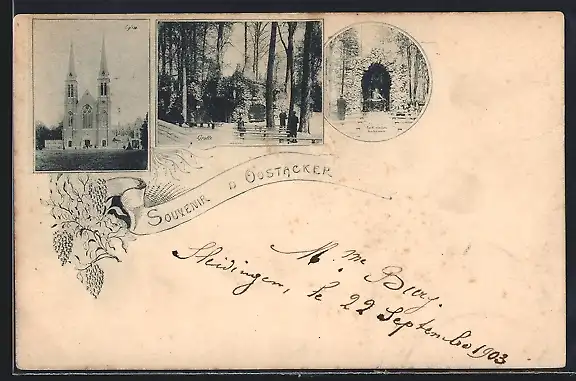 Eglise
Grotte
SOUVENIR D'OOSTACKER
M. me Burg.
Sleidingen, le 22 Septembre 1903